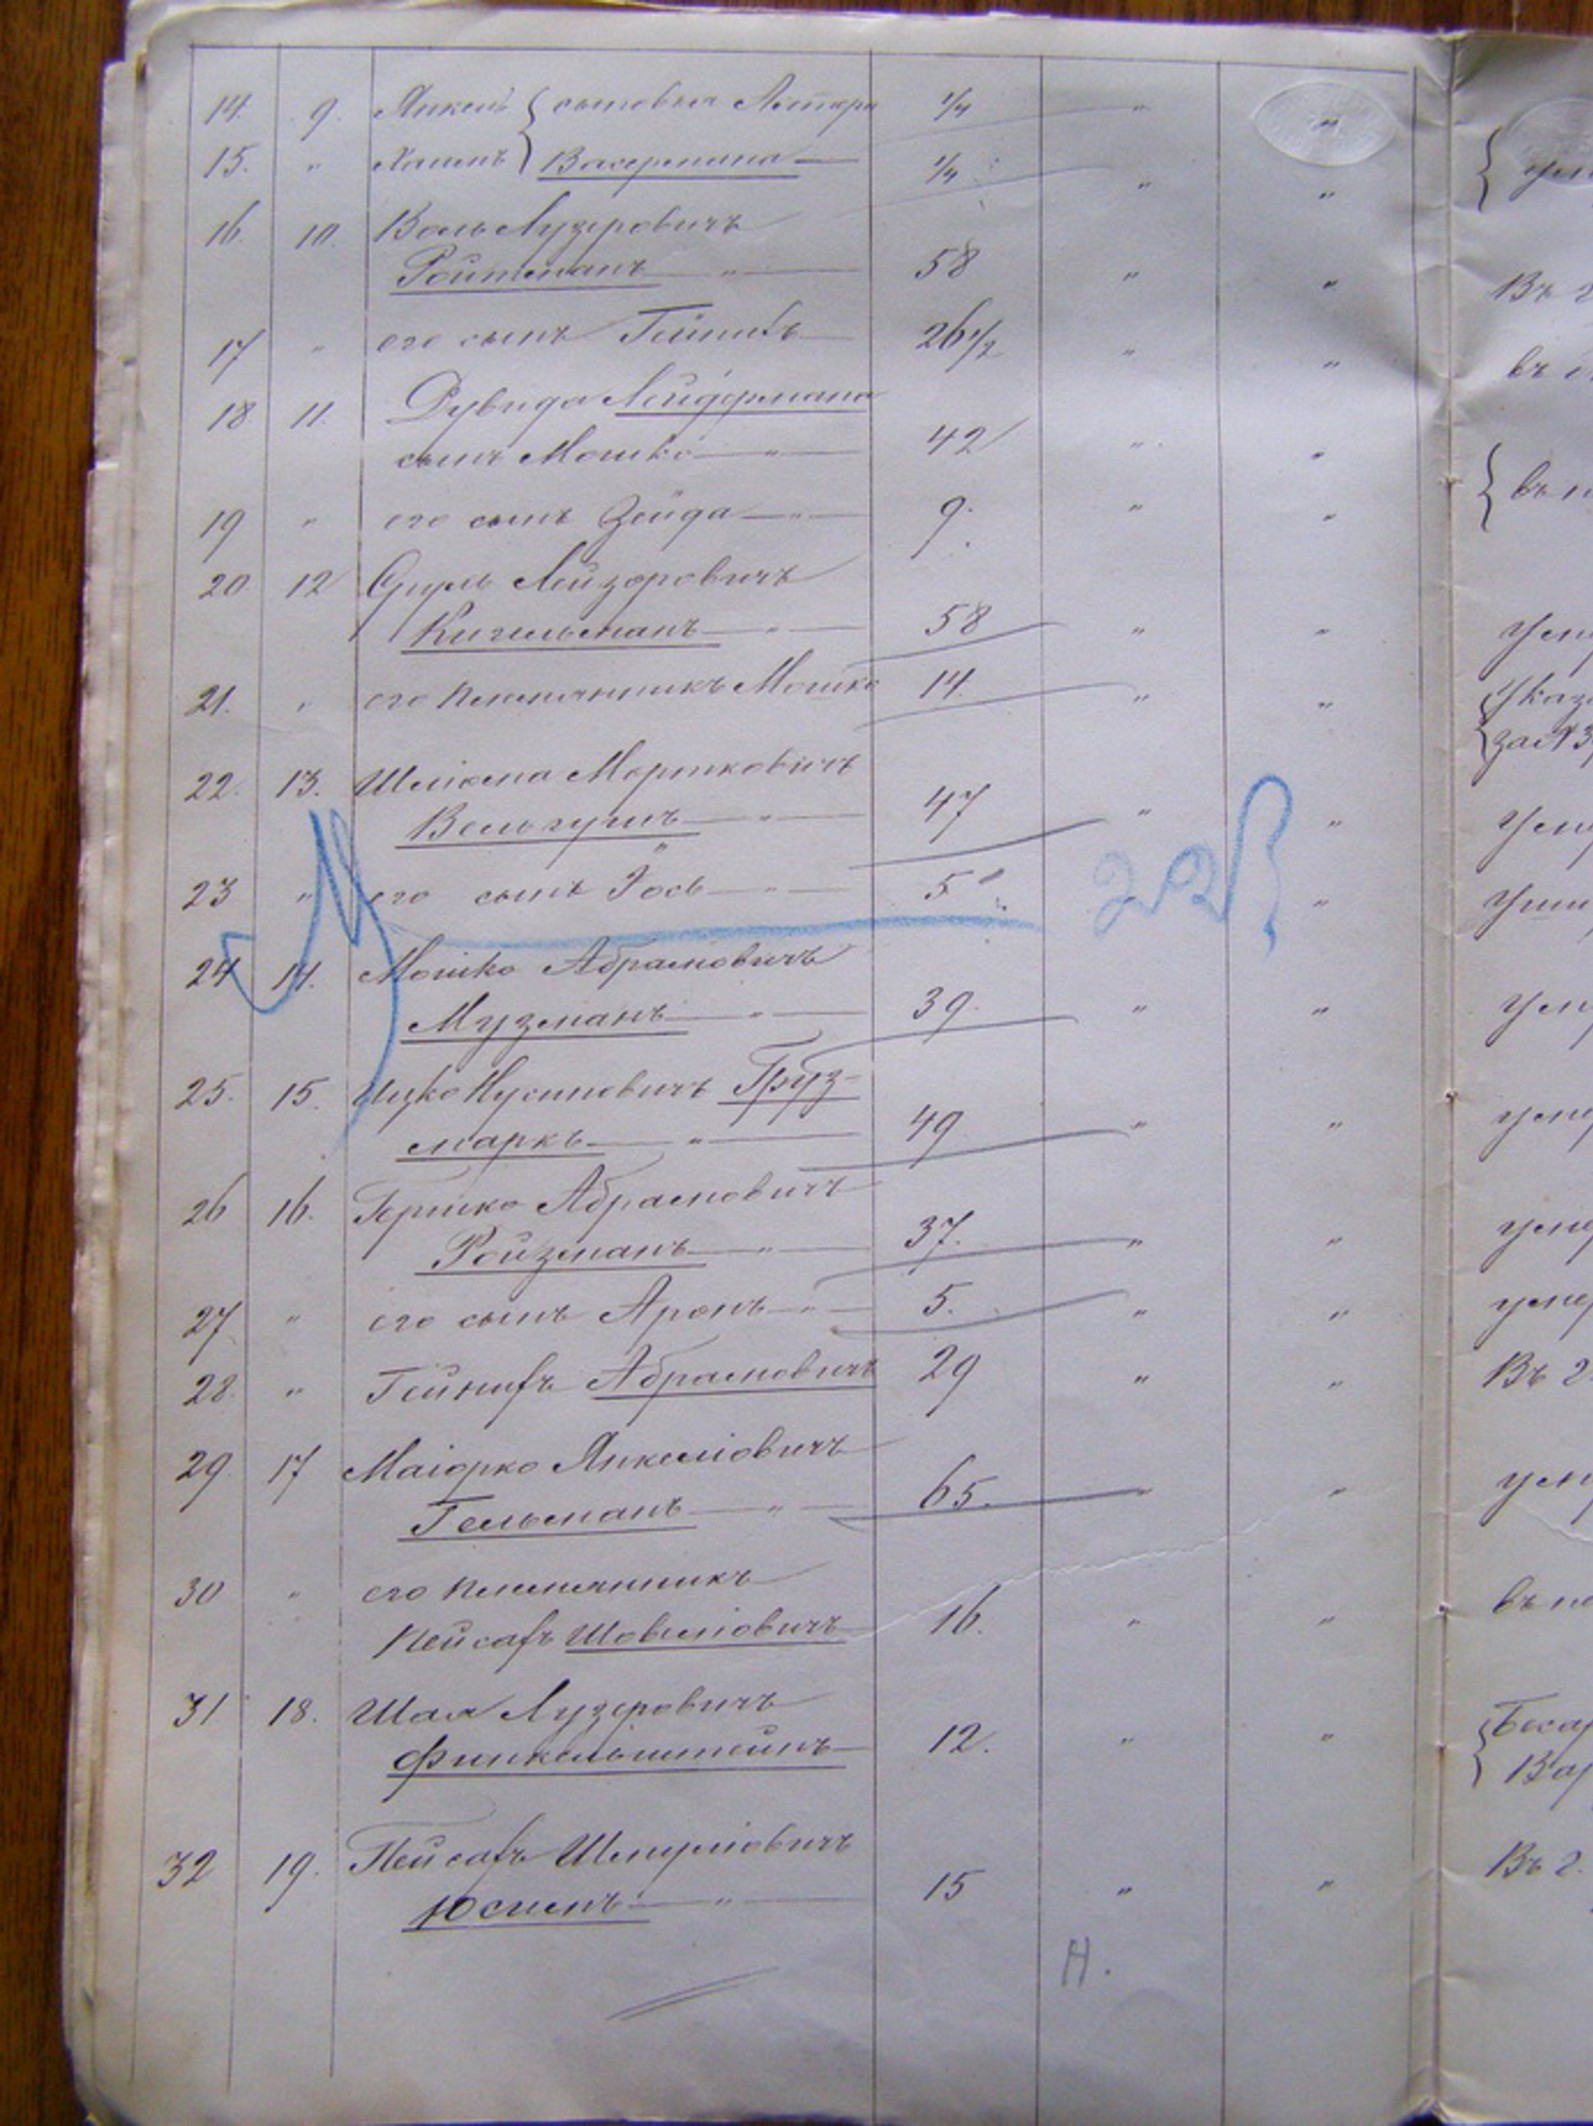 14. 9. Янкель { сыновья Лейзера 1/4 "
15. " Хаимъ } Васермана — 1/4 " "
16. 10.Воль Лузеровичъ
Ройтманъ — " — 58 " "
17 " его сынъ Гейнихъ — 26 1/2 " "
18 11. Дувида Лейдермана
сынъ Мошко — " — 42 " "
19 " его сынъ Зейда — " — 9. " "
20 12 Сруль Лейзоровичъ
Кигельманъ — " — 58 " "
21. " его племянникъ Мошко 14. " "
22. 13. Шліома Моршковичъ
Вельгушъ — " — 47 " "
23 " его сынъ Іось — " — 5 " "
24 14. Мошко Абрамовичъ
Музманъ — " — 39. " "
25. 15. Ицко Нусиновичъ Груз-
маркъ — " — 49 " "
26 16. Гершко Абрамовичъ
Ройзманъ — " — 37. " "
27 " его сынъ Аронъ — " — 5. " "
28. " Гейнихъ Абрамовичъ 29 " "
29. 17 Маіорко Янкеліовичъ
Гельманъ — " — 65. " "
30 " его племянникъ
Пейсахъ Шовліовичъ 16. " "
31 18. Шая Лузеровичъ
Финкельштейнъ — 12. " "
32 19. Пейсахъ Шмуліовичъ
Юсимъ — " — 15 " "
Н.